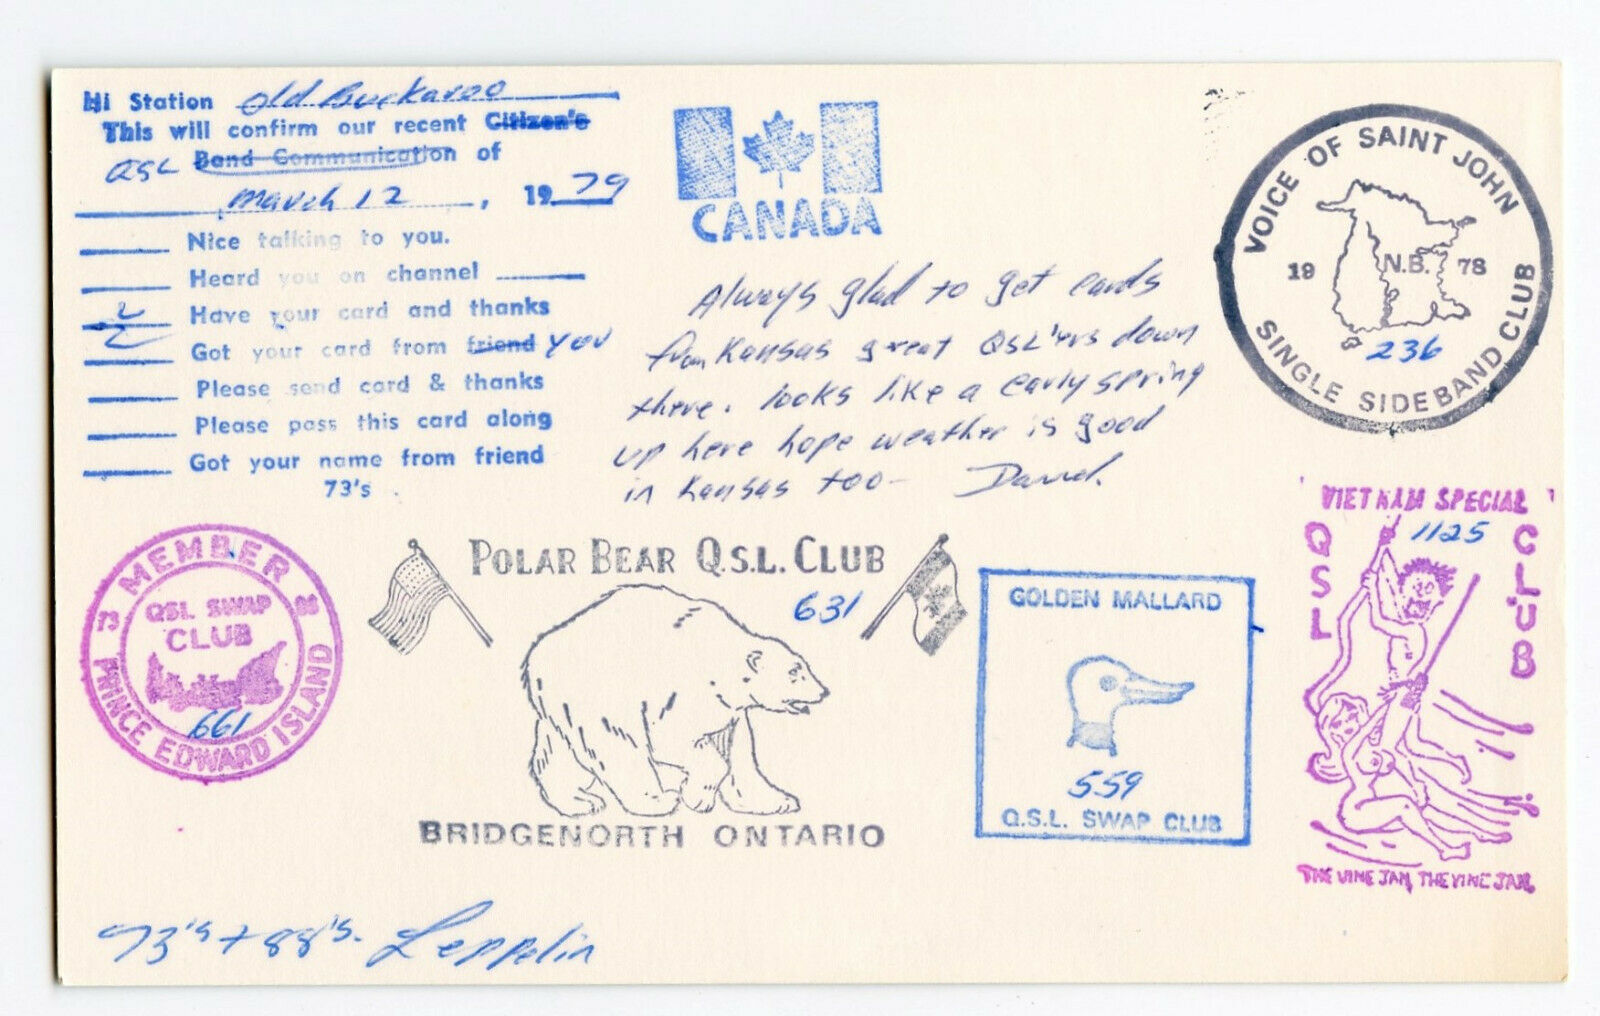 Hi Station Old Buckaroo
This will confirm our recent Citizen's
QSL Band Communication of
March 12, 1979
Nice talking to you.
Heard you on channel
Have your card and thanks
Got your card from friend you
Please send card & thanks
Please pass this card along
Got your name from friend
73's
CANADA
Always glad to get cards
from Kansas great QSL'ers down
there. looks like a early spring
up here hope weather is good
in Kansas too- David.
VOICE OF SAINT JOHN
19 N.B. 78
236
SINGLE SIDEBAND CLUB
MEMBER
73 88
QSL SWAP
CLUB
661
PRINCE EDWARD ISLAND
POLAR BEAR Q.S.L. CLUB
631
BRIDGENORTH ONTARIO
GOLDEN MALLARD
559
Q.S.L. SWAP CLUB
VIETNAM SPECIAL
1125
QSL
CLUB
THE VINE JAM, THE VINE JAM
73's + 88's. Leppelin